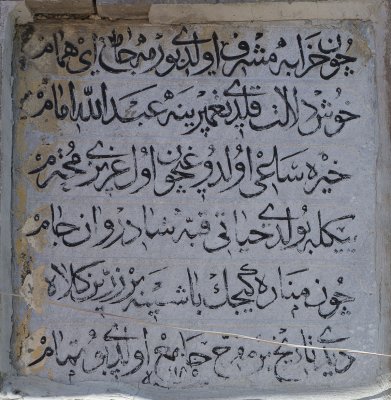 چون خرابه مشرف اولدی بو رمه جامع ای همام
خوش دلالت قلدی تعمیرینه عبد الله امام
خیره ساعی اولدوغیچون اول عزیزی محترم
یکله بولدی حیاتی قبه شادروان جام
چون مناره گیجك باشینه بر زرین کلاه
دیدی تاریخ برمفرح جامع اولدی بو تمام